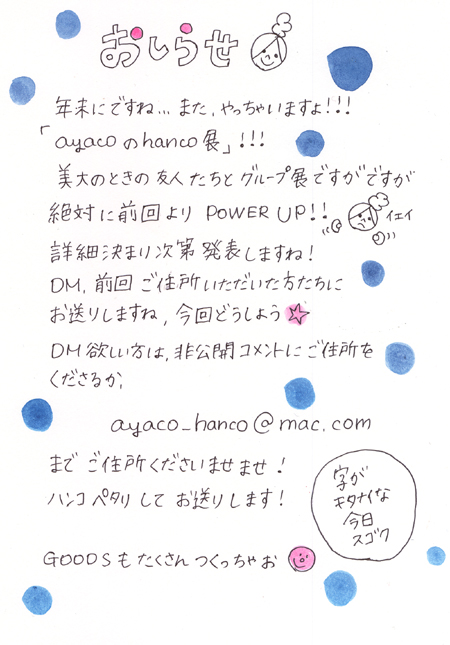 おしらせ
年末にですね...また、やっちゃいますよ!!!
「ayacoのhanco展」!!!
美大のときの友人たちとグループ展ですがですが
絶対に前回よりPOWER UP!!
イエイ
詳細決まり次第発表しますね!
DM,前回ご住所いただいた方たちに
お送りしますね,今回どうしよう☆
DM欲しい方は,非公開コメントにご住所を
くださるか,
ayaco_hanco@mac.com
までご住所くださいませませ!
ハンコペタリしてお送りします!
字が
キタナイな
今日
スゴク
GOODSもたくさんつくっちゃお